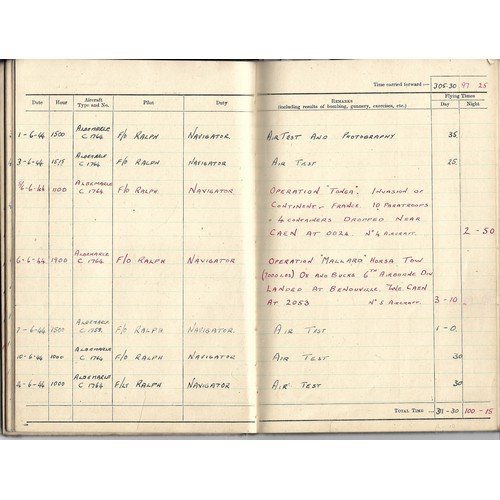 Time carried forward :— 305-30 97 25
Date Hour Aircraft Type and No. Pilot Duty Remarks (including results of bombing, gunnery, exercises, etc.) Flying Times
Day Night
1-6-44 1500 ALBEMARLE C 1764 F/O RALPH NAVIGATOR AIR TEST AND PHOTOGRAPHY 35
3-6-44 1515 ALBEMARLE C 1764 F/O RALPH NAVIGATOR AIR TEST 25
5/6-6-44 1100 ALBEMARLE C 1764 F/O RALPH NAVIGATOR OPERATION "TONGA": INVASION OF
CONTINENT - FRANCE. 10 PARATROOPS
+ 4 CONTAINERS DROPPED NEAR
CAEN AT 0024. Nº 4 AIRCRAFT. 2-50
6-6-44 1900 ALBEMARLE C 1764 F/O RALPH NAVIGATOR OPERATION "MALLARD" HORSA TOW
(7000 LBS) OX AND BUCKS 6TH AIRBORNE DIV
LANDED AT BENOUVILLE CAEN
AT 2053 Nº 5 AIRCRAFT. 3-10
7-6-44 1500 ALBEMARLE F/O RALPH NAVIGATOR. AIR TEST 1-0
10-6-44 1000 ALBEMARLE C 1764 F/O RALPH NAVIGATOR AIR TEST 30
1000 ALBEMARLE C 1764 F/LT RALPH NAVIGATOR AIR TEST 30
TOTAL TIME 311-30 100-15